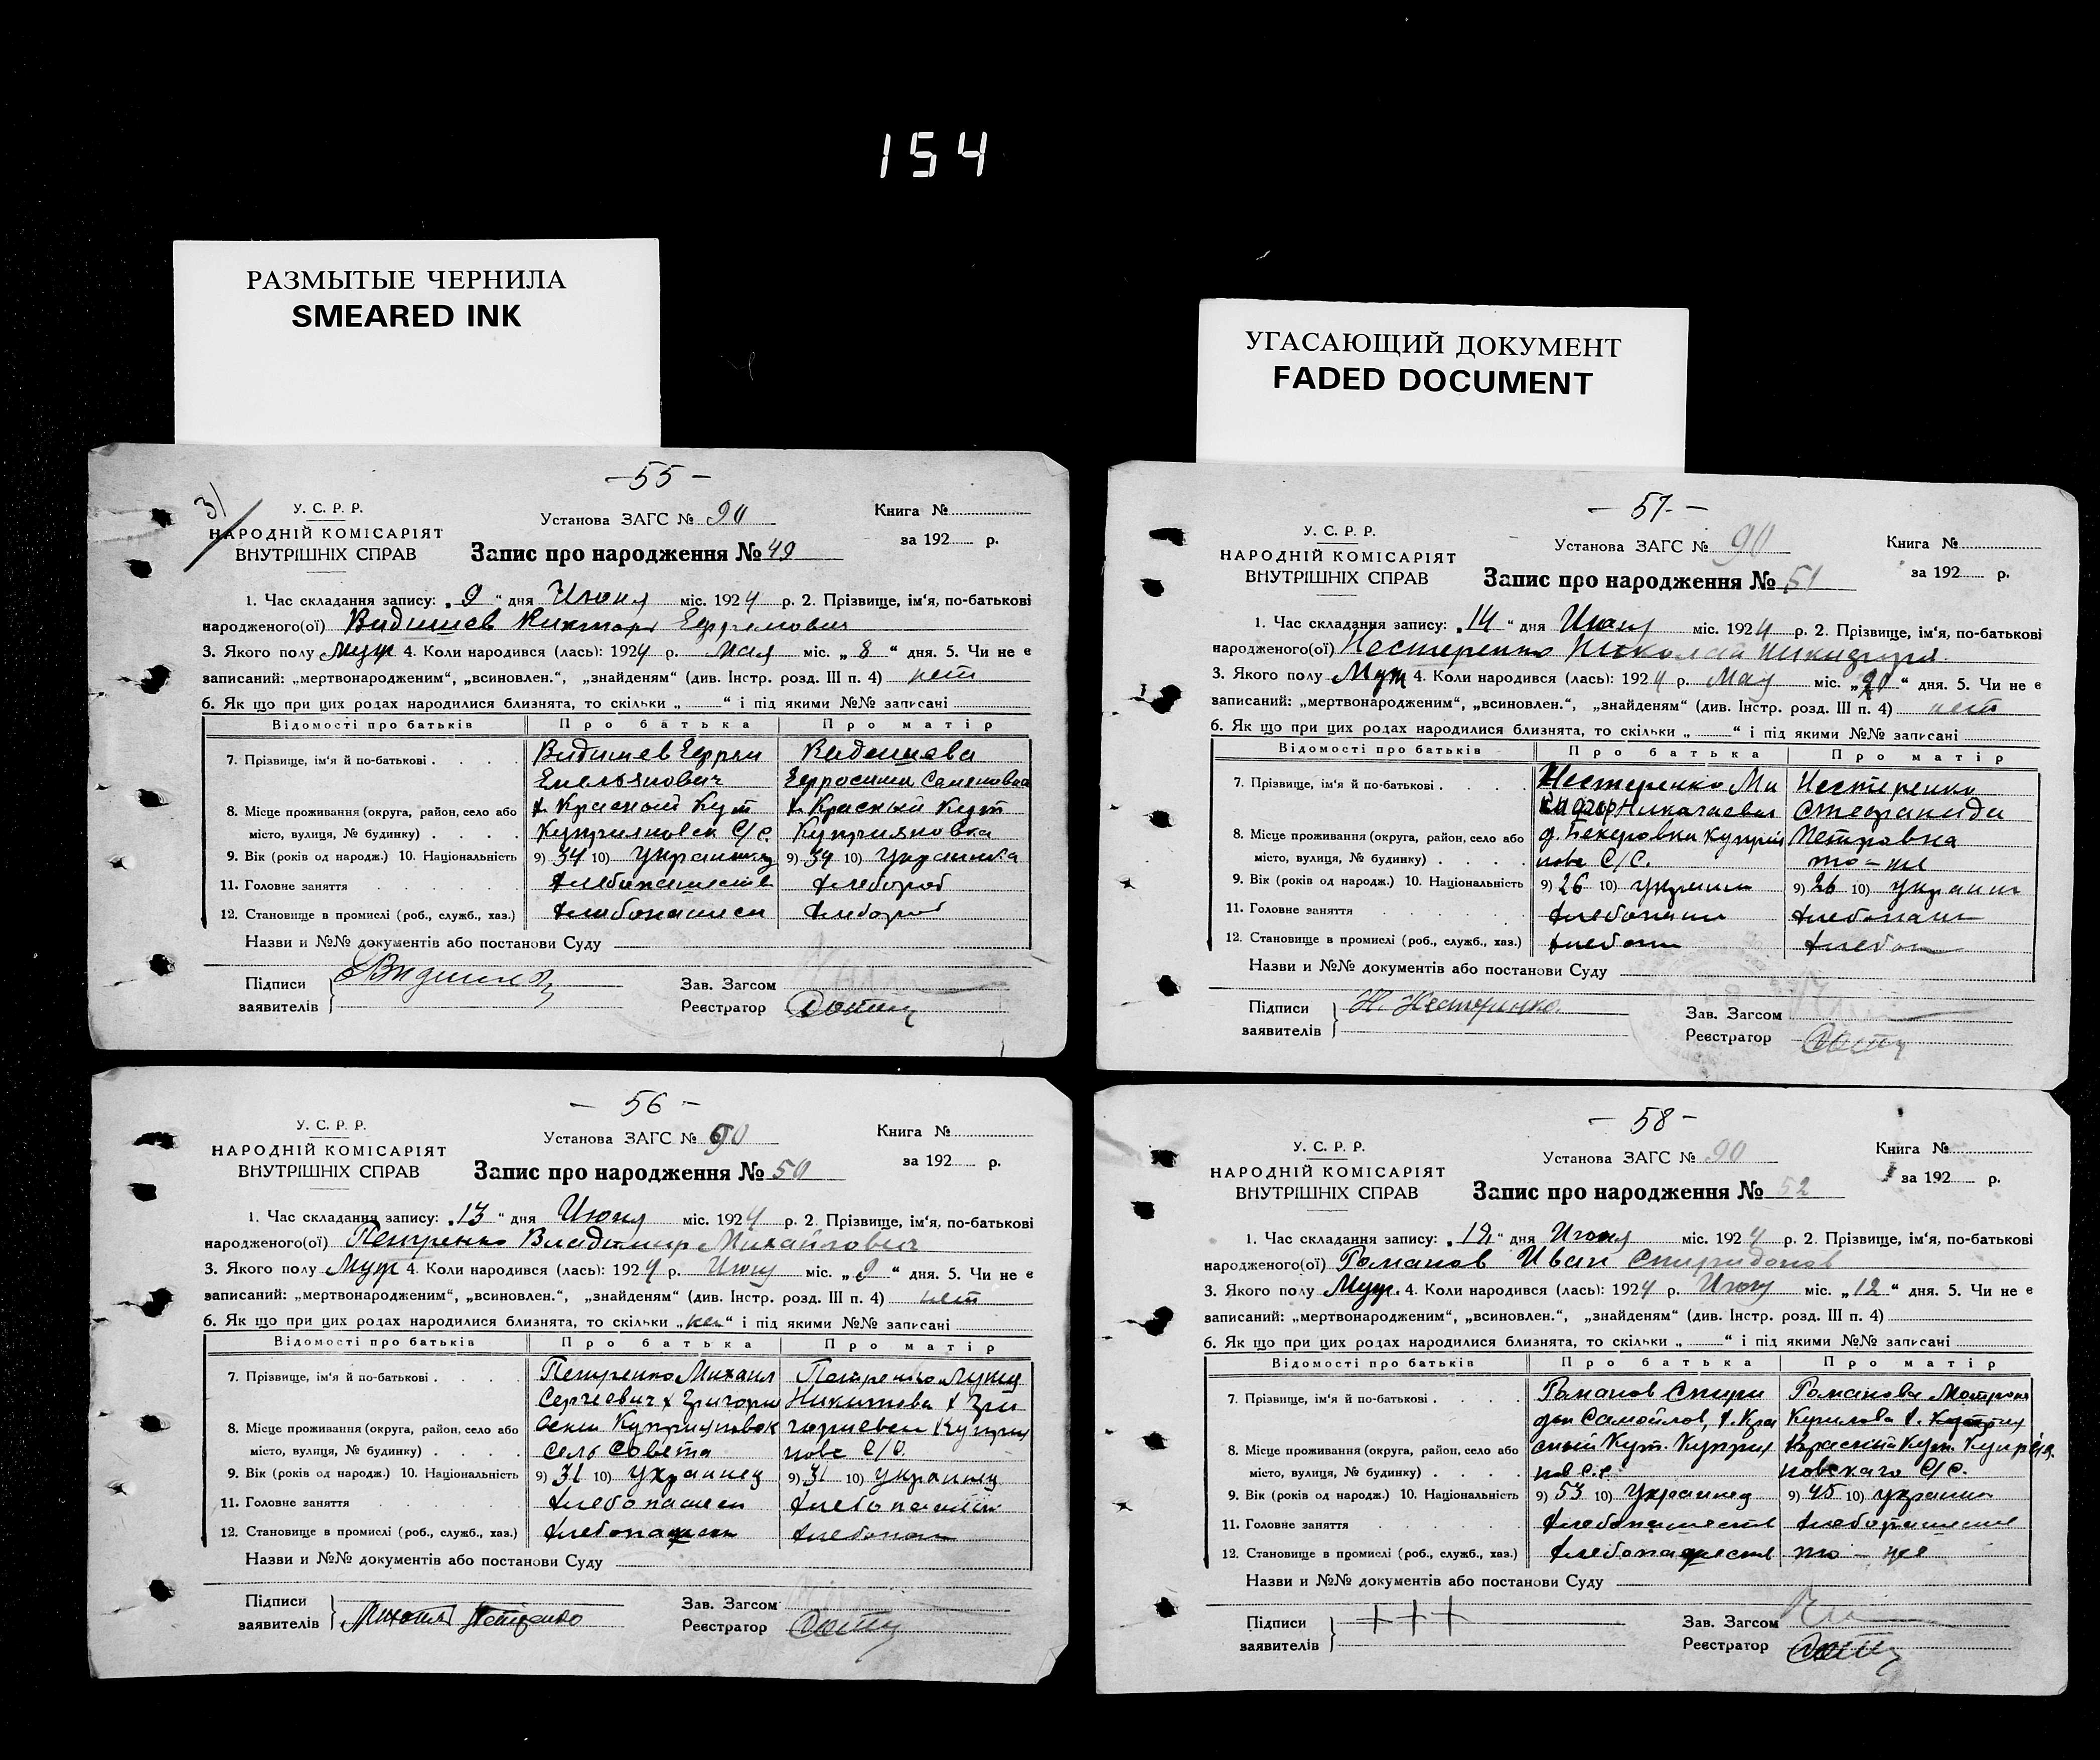 154
РАЗМЫТЫЕ ЧЕРНИЛА
SMEARED INK
УГАСАЮЩИЙ ДОКУМЕНТ
FADED DOCUMENT
-55-
31
У. С. Р. Р.
НАРОДНІЙ КОМІСАРІЯТ
ВНУТРІШНІХ СПРАВ
Установа ЗАГС № 90
Книга №
за 192 р.
Запис про народження № 49
1. Час складання запису: „9“ дня Июня міс. 1924 р. 2. Прізвище, ім‘я, по-батькові
народженого(ої) Видишев Виктор Ефремович
3. Якого полу Муж 4. Коли народився (лась): 1924 р. Мая міс. „8“ дня. 5. Чи не є
записаний: „мертвонародженим“, „всиновлен.“, „знайденям“ (див. Інстр. розд. III п. 4) нет
6. Як що при цих родах народилися близнята, то скільки „ “ і під якими №№ записані
Відомості про батьків Про батька Про матір
7. Прізвище, ім‘я й по-батькові Видишев Ефрем Видишева
Емельянович Ефросинья Семеновна
8. Місце проживання (округа, район, село або х. Красный Кут х. Красный Кут
місто, вулиця, № будинку) Куприяновск С/С. Куприяновка
9. Вік (років од народж.) 10. Національність 9) 34 10) Украинец 9) 34 10) Украинка
11. Головне заняття Хлебопашеств Хлебороб
12. Становище в промислі (роб., служб., хаз.) Хлебопашен Хлебороб
Назви и №№ документів або постанови Суду
Підписи
заявителів
Зав. Загсом
Реєстратор
-57-
У. С. Р. Р.
НАРОДНІЙ КОМІСАРІЯТ
ВНУТРІШНІХ СПРАВ
Установа ЗАГС № 90
Книга №
за 192 р.
Запис про народження № 51
1. Час складання запису: „14“ дня Июня міс. 1924 р. 2. Прізвище, ім‘я, по-батькові
народженого(ої) Нестеренко Николай
3. Якого полу Муж 4. Коли народився (лась): 1924 р. Мая міс. „20“ дня. 5. Чи не є
записаний: „мертвонародженим“, „всиновлен.“, „знайденям“ (див. Інстр. розд. III п. 4) нет
6. Як що при цих родах народилися близнята, то скільки „ “ і під якими №№ записані
Відомості про батьків Про батька Про матір
7. Прізвище, ім‘я й по-батькові Нестеренко Ни Нестеренко
кифор Николаевич Стефанида
8. Місце проживання (округа, район, село або Куприя Петровна
місто, вулиця, № будинку) нов С/С. то-же
9. Вік (років од народж.) 10. Національність 9) 26 10) украин 9) 26 10) украин
11. Головне заняття Хлебопаш Хлебопаш
12. Становище в промислі (роб., служб., хаз.) Хлебопаш Хлебоп
Назви и №№ документів або постанови Суду
Підписи Н. Нестеренко
заявителів
Зав. Загсом
Реєстратор
-56-
У. С. Р. Р.
НАРОДНІЙ КОМІСАРІЯТ
ВНУТРІШНІХ СПРАВ
Установа ЗАГС № 90
Книга №
за 192 р.
Запис про народження № 50
1. Час складання запису: „13“ дня Июня міс. 1924 р. 2. Прізвище, ім‘я, по-батькові
народженого(ої) Петренко Владимир Михайлович
3. Якого полу Муж 4. Коли народився (лась): 1924 р. Июня міс. „9“ дня. 5. Чи не є
записаний: „мертвонародженим“, „всиновлен.“, „знайденям“ (див. Інстр. розд. III п. 4) нет
6. Як що при цих родах народилися близнята, то скільки „нет“ і під якими №№ записані
Відомості про батьків Про батька Про матір
7. Прізвище, ім‘я й по-батькові Петренко Михаил Петренко
Сергеевич х Григорьев Никитовна х Гри
8. Місце проживання (округа, район, село або Куприяновск горьевск Куприя
місто, вулиця, № будинку) Сель Совета нов С/С.
9. Вік (років од народж.) 10. Національність 9) 31 10) украинец 9) 31 10) украинец
11. Головне заняття Хлебопашен Хлебопашен
12. Становище в промислі (роб., служб., хаз.) Хлебопашен Хлебопаш
Назви и №№ документів або постанови Суду
Підписи
заявителів Михаил Петренко
Зав. Загсом
Реєстратор
-58-
У. С. Р. Р.
НАРОДНІЙ КОМІСАРІЯТ
ВНУТРІШНІХ СПРАВ
Установа ЗАГС № 90
Книга №
за 192 р.
Запис про народження № 52
1. Час складання запису: дня Июня міс. 1924 р. 2. Прізвище, ім‘я, по-батькові
народженого(ої) Романов Иван Спиридонов
3. Якого полу Муж. 4. Коли народився (лась): 1924 р. Июня міс. „12“ дня. 5. Чи не є
записаний: „мертвонародженим“, „всиновлен.“, „знайденям“ (див. Інстр. розд. III п. 4)
6. Як що при цих родах народилися близнята, то скільки „ “ і під якими №№ записані
Відомості про батьків Про батька Про матір
7. Прізвище, ім‘я й по-батькові Романов Спири Романова Матрона
дон Самойлов, х. Кра Кирилова х.
8. Місце проживання (округа, район, село або сный Кут. Куприя Красный Кут. Куприя
місто, вулиця, № будинку) нов С.С. новскаго С/С.
9. Вік (років од народж.) 10. Національність 9) 53 10) Украинец 9) 45 10) украин
11. Головне заняття Хлебопашеств Хлебопашеств
12. Становище в промислі (роб., служб., хаз.) Хлебопашеств то-же
Назви и №№ документів або постанови Суду
Підписи +++
заявителів
Зав. Загсом
Реєстратор